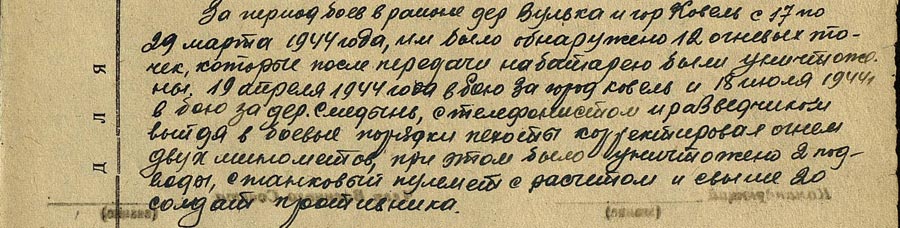 За период боев в районе дер Вулька и гор Ковель с 17 по
29 марта 1944 года, им было обнаружено 12 огневых то-
чек, которые после передачи на батарею были уничтоже-
ны, 19 апреля 1944 года в бою за город Ковель и 18 июля 1944г
в бою за дер. Смедынь, с телефонистом и разведчиком
выйдя в боевые порядки пехоты корректировал огнем
двух минометов, при этом было уничтожено 2 под-
воды, станковый пулемет с расчетом и свыше 20
солдат противника.
Д Л Я